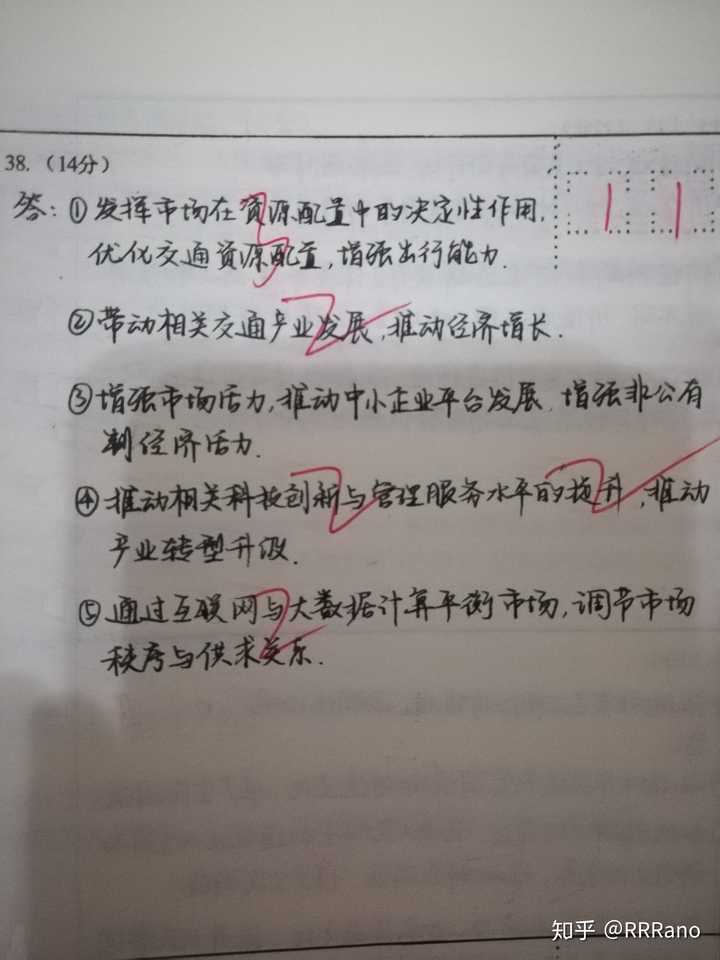 38.（14分）
11
答：①发挥市场在资源配置中的决定性作用，
优化交通资源配置，增强出行能力.
②带动相关交通产业发展，推动经济增长.
③增强市场活力，推动中小企业平台发展，增强非公有
制经济活力.
④推动相关科技创新与管理服务水平的提升，推动
产业转型升级.
⑤通过互联网与大数据计算平衡市场，调节市场
秩序与供求关系.
知乎 @RRRano